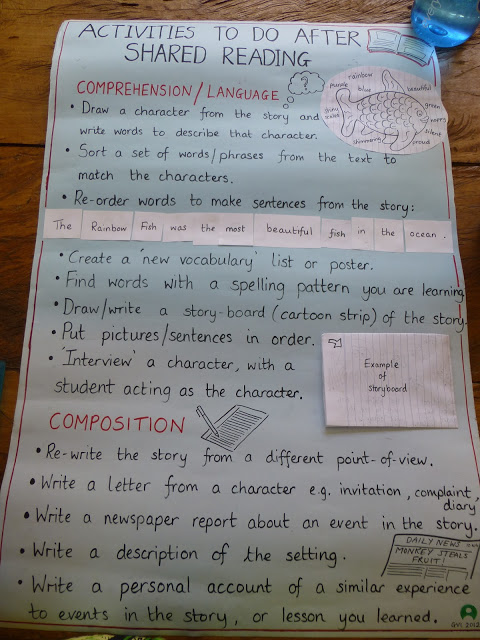 ACTIVITIES TO DO AFTER
SHARED READING
COMPREHENSION/LANGUAGE
?
• Draw a character from the story and
write words to describe that character.
rainbow
blue
beautiful
green
silent
proud
shimmery
• Sort a set of words/phrases from the text to
match the characters.
• Re-order words to make sentences from the story:
The Rainbow Fish was the most beautiful fish in the ocean.
• Create a 'new vocabulary' list or poster.
• Find words with a spelling pattern you are learning
• Draw/write a story-board (cartoon strip) of the story.
• Put pictures/sentences in order.
• 'Interview' a character, with a
student acting as the character.
Example
of
storyboard
COMPOSITION
• Re-write the story from a different point-of-view.
• Write a letter from a character e.g. invitation, complaint,
diary
• Write a newspaper report about an event in the story.
• Write a description of the setting.
DAILY NEWS
MONKEY STEALS
FRUIT!
• Write a personal account of a similar experience
to events in the story, or lesson you learned.
GVI 2012